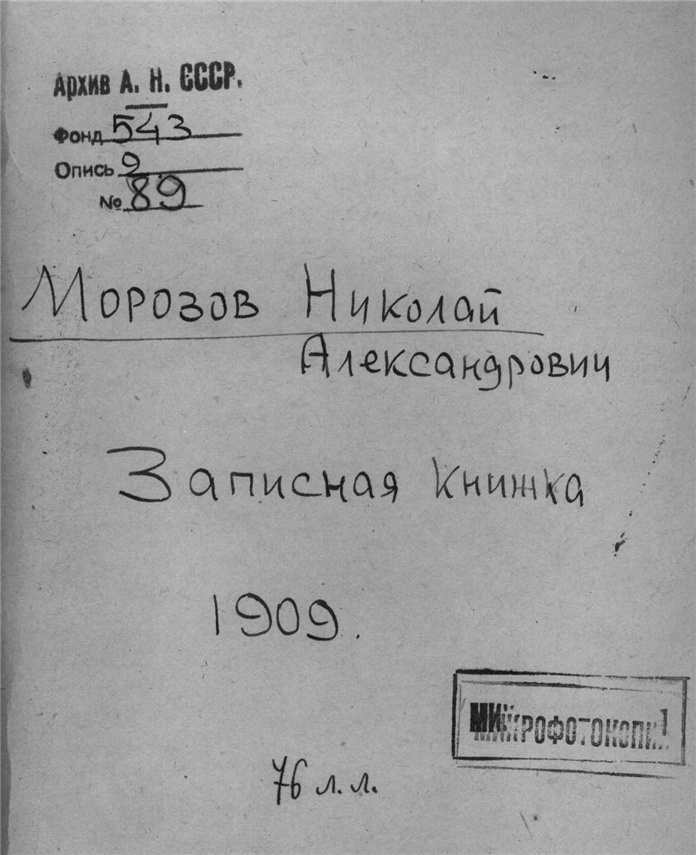 Архив А. Н. СССР.
Фонд 543
Опись 2
№ 89
Морозов Николай
Александрович
Записная книжка
1909.
76 л.л.